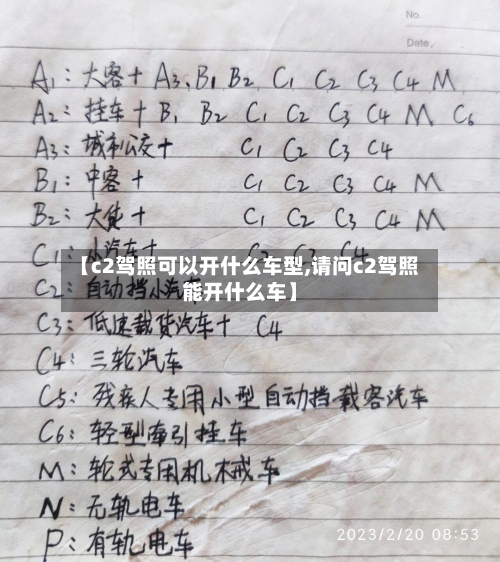 No.
Date.
A1: 大客十 A3、B1 B2 C1 C2 C3 C4 M
A2: 挂车十 B1 B2 C1 C2 C3 C4 M C6
A3: 城市公交十 C1 C2 C3 C4
B1: 中客十 C1 C2 C3 C4 M
B2: 大货十 C1 C2 C3 C4 M
C1: 小汽车十 C2 C3 C4
【c2驾照可以开什么车型,请问c2驾照
能开什么车】
C2: 自动挡小汽车
C3: 低速载货汽车十 C4
C4: 三轮汽车
C5: 残疾人专用小型自动挡载客汽车
C6: 轻型牵引挂车
M: 轮式专用机械车
N: 无轨电车
P: 有轨电车
2023/2/20 08:53